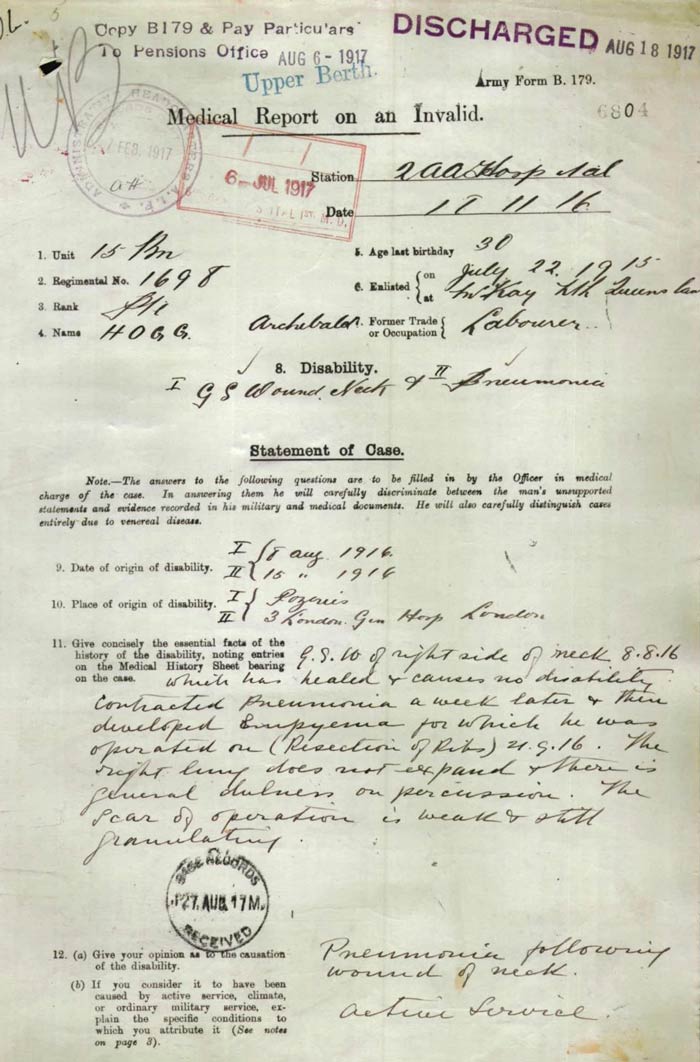 Copy B179 & Pay Particulars
To Pensions Office AUG 6-1917
DISCHARGED AUG 18 1917
Upper Berth.
Army Form B. 179.
6804
Medical Report on an Invalid.
FEB. 1917
6-JUL 1917
Station 2 AA Hospital
Date 11 16
1. Unit 15 Bn
5. Age last birthday 30
2. Regimental No. 1698
6. Enlisted { on July 22. 1915
at McKay Nth Queensland
3. Rank Pte
4. Name HOGG. Archibald
7. Former Trade or Occupation { Labourer
8. Disability.
I G S Wound Neck & II Pneumonia
Statement of Case.
Note.—The answers to the following questions are to be filled in by the Officer in medical
charge of the case. In answering them he will carefully discriminate between the man's unsupported
statements and evidence recorded in his military and medical documents. He will also carefully distinguish cases
entirely due to venereal disease.
9. Date of origin of disability. I { 8 Aug 1916.
II 15 " 1916
10. Place of origin of disability. I { Pozeries
II 3 London Gen Hosp London
11. Give concisely the essential facts of the
history of the disability, noting entries
on the Medical History Sheet bearing
on the case.
G.S.W of right side of neck 8.8.16
which has healed & causes no disability
Contracted Pneumonia a week later & then
developed Empyema for which he was
operated on (Resection of Ribs) 21.9.16. The
right lung does not expand & there is
general dulness on percussion. The
scar of operation is weak & still
granulating.
BASE RECORDS
27 AUG 17
RECEIVED
12. (a) Give your opinion as to the causation
of the disability.
Pneumonia following
wound of neck.
(b) If you consider it to have been
caused by active service, climate,
or ordinary military service, ex-
plain the specific conditions to
which you attribute it (See notes
on page 3).
Active Service.